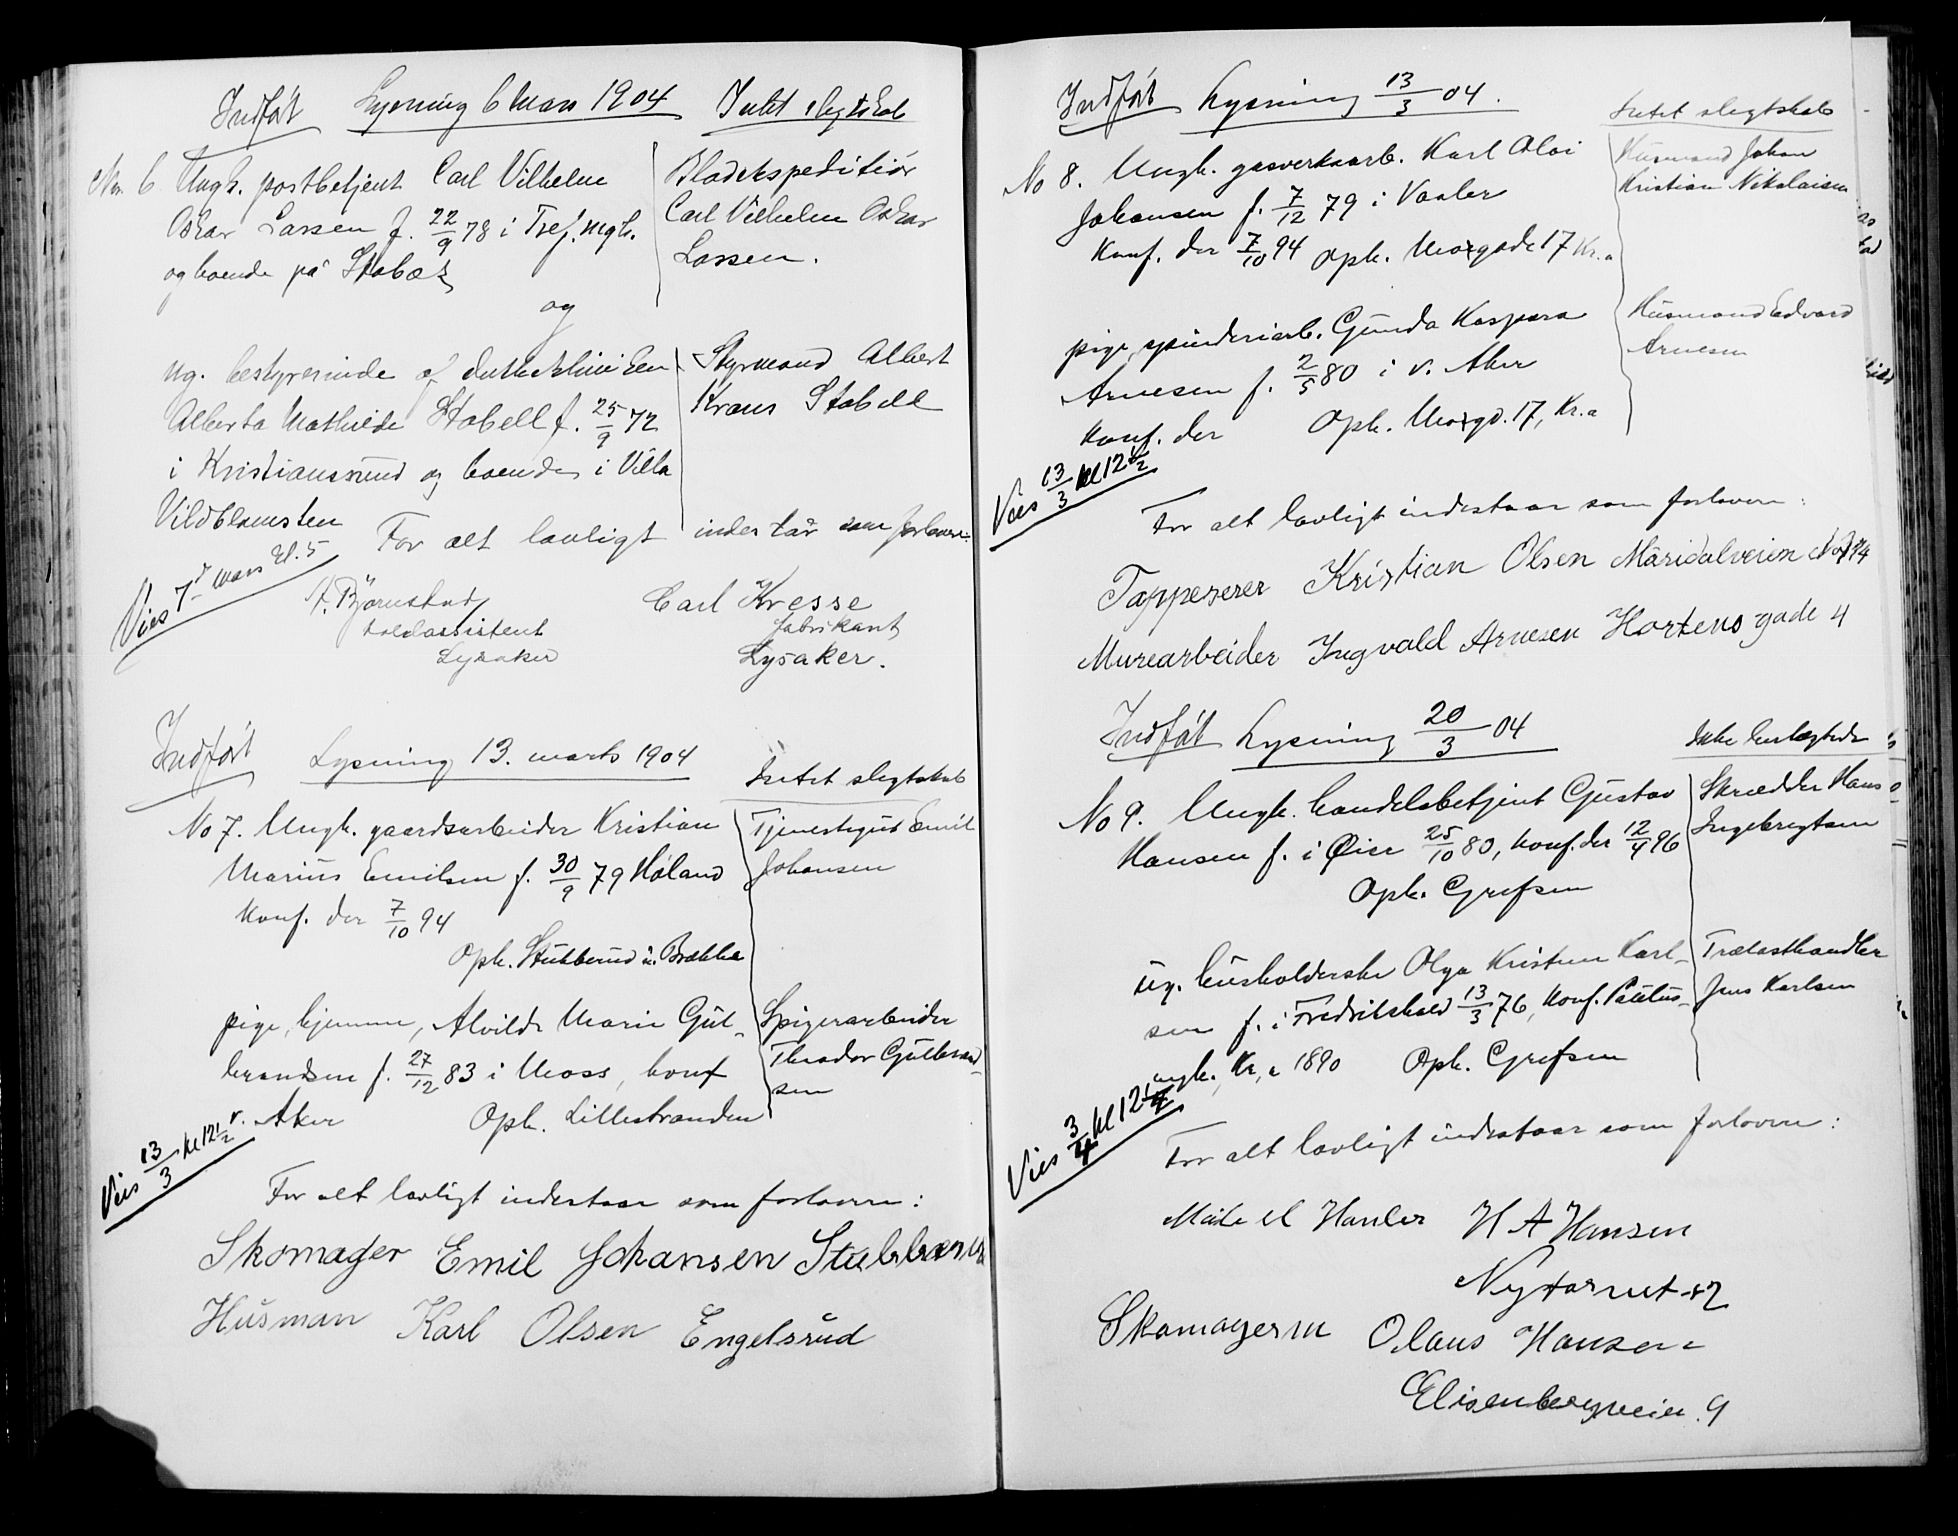 Indført Lysning 6 Mars 1904 Intet slegtskab
No. 6 Ungk. postbetjent Carl Vilhelm
Oskar Larsen f. 22/9 78 i Tref. mgh.
og boende på Stabæk
Bladekspeditiør
Carl Vilhelm Oskar
Larsen.
og
ug. bestyrerinde af
Alberta Mathilde Stabell f. 25/9 72
i Kristianssund og boende i Villa
Vildblomsten
Styrmand Albert
Kraus Stabell
For alt lovligt indestår som forlovere:
Viet 7de mars kl. 5
Bjørnstad
toldassistent
Lysaker
Carl Kresse
fabrikant
Lysaker.
Indført Lysning 13. marts 1904
Intet slegtskab
No 7. Ungk. gaardsarbeider Kristian
Marius Emilsen f. 30/9 79 Høland
konf. der 7/10 94
Oph. Stubberud i. Brække
Tjenestegut Emil
Johansen
pige, hjemme, Alvilde Marie Gul-
brandsen f. 27/12 83 i Moss, konf
v. Aker Oph. Lillestranden
Spigerarbeider
Theodor Gulbrand-
sen
Viet 13/3 kl 12 1/2
For alt lovligt indestaar som forlovere:
Skomager Emil Johansen Stubberud
Husman Karl Olsen Engelsrud
Indført Lysning 13/3 04.
Intet slegtskab
No 8. Ungk. gasverksarb. Karl Olai
Johansen f. 7/12 79 i Vaaler
Konf. der 7/10 94 Oph. Mosgade 17 Kr.a
Husmand Johan
Kristian Nikolaisen
pige, spinderiarb. Gunda Kaspara
Arnesen f. 2/5 80 i v. Aker
Konf. der Oph. Mosgd. 17, Kr.a
Husmand Edvard
Arnesen
Viet 13/3 kl 12 1/2
For alt lovligt indestaar som forlovere:
Tappeserer Kristian Olsen Maridalveien
Murearbeider Ingvald Arnesen Hortens gade 4
Indført Lysning 20/3 04
Ikke beslegtede
No 9. Ungk. handelsbetjent Gustav
Hansen f. i Øier 25/10 80, konf. der 12/4 96
Oph. Grefsen
Skrædder Hans
Ingebregtsen
ug. husholderske Olga Kristine Karl-
sen f. i Fredrikshald 13/3 76, konf. Paulus-
mgh., Kr.a 1890 Oph. Grefsen
Trælasthandler
Jens Karlsen
Viet 3/4 kl 12 1/4
For alt lovligt indestaar som forlovere:
H A Hansen
Nytorvet 2
Skomagerm Olaus Hansen
Elisenbergveien 9